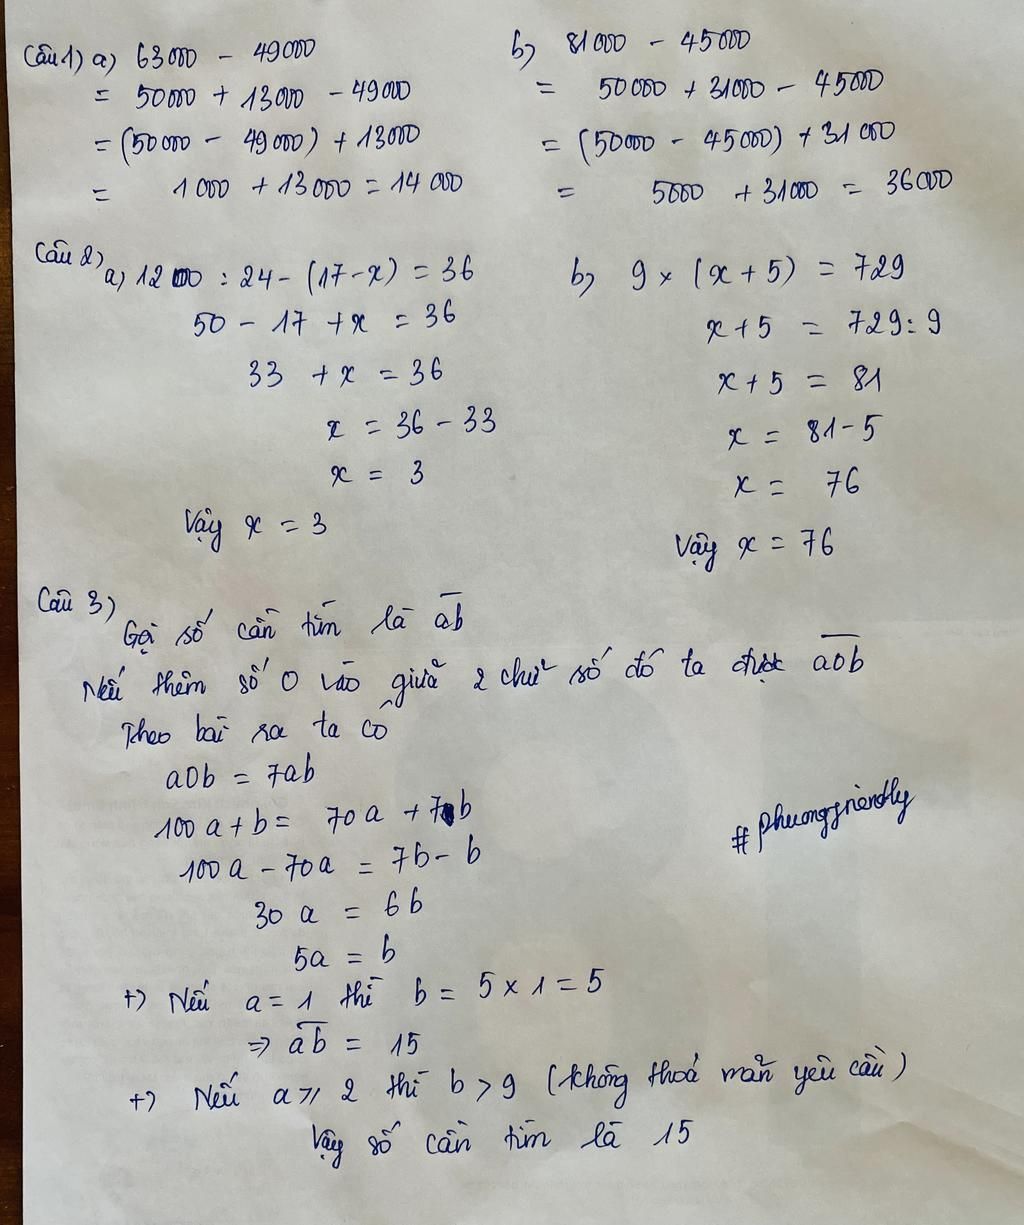 Câu 1) a) 63000 - 49000
= 50000 + 13000 - 49000
= (50000 - 49000) + 13000
= 1000 + 13000 = 14000
b) 81000 - 45000
= 50000 + 31000 - 45000
= (50000 - 45000) + 31000
= 5000 + 31000 = 36000
Câu 2) a) 1200 : 24 - (17 - x) = 36
50 - 17 + x = 36
33 + x = 36
x = 36 - 33
x = 3
Vậy x = 3
b) 9 × (x + 5) = 729
x + 5 = 729 : 9
x + 5 = 81
x = 81 - 5
x = 76
Vậy x = 76
Câu 3)
Gọi số cần tìm là a̅b̅
Nếu thêm số 0 vào giữa 2 chữ số đó ta được a̅0̅b̅
Theo bài ra ta có
a0b = 7ab
100a + b = 70a + 7b
100a - 70a = 7b - b
30a = 6b
5a = b
+) Nếu a = 1 thì b = 5 × 1 = 5
=> a̅b̅ = 15
+) Nếu a ≥ 2 thì b > 9 (không thoả mãn yêu cầu)
Vậy số cần tìm là 15
#phuongfriendly